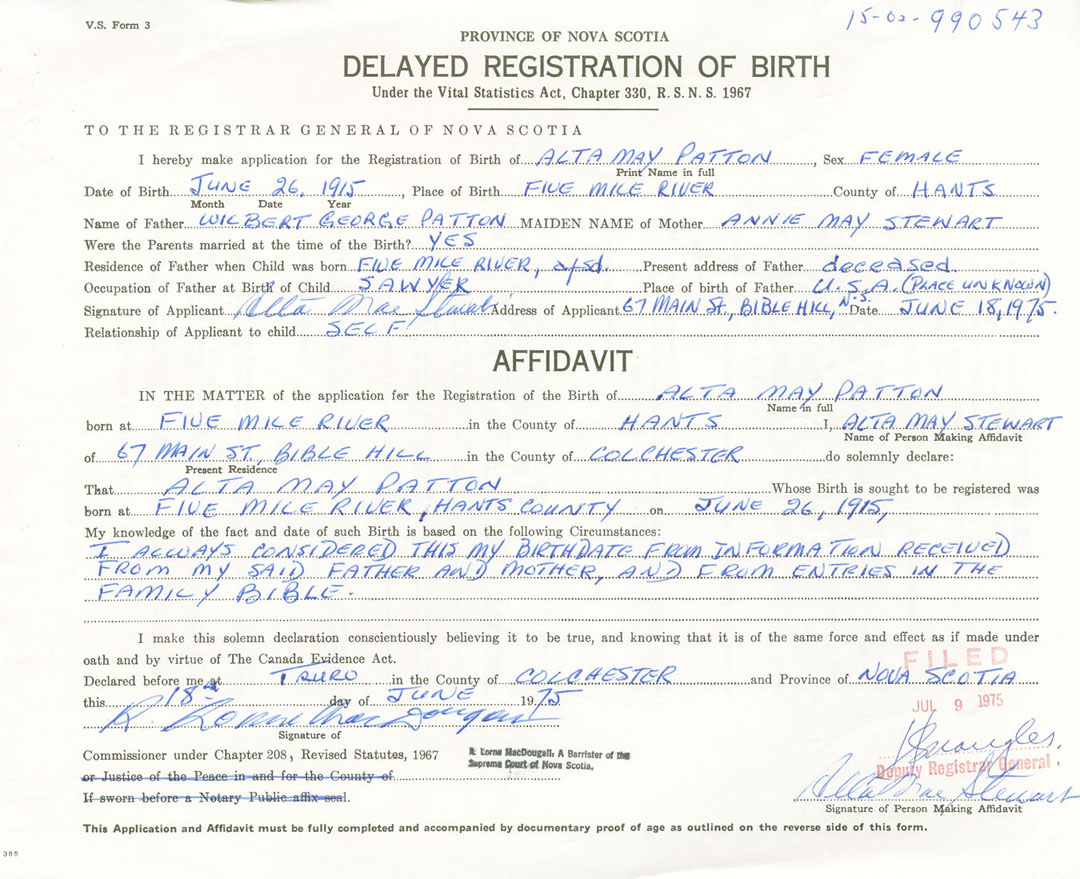 V.S. Form 3
15-02-990543
PROVINCE OF NOVA SCOTIA
DELAYED REGISTRATION OF BIRTH
Under the Vital Statistics Act, Chapter 330, R. S. N. S. 1967
TO THE REGISTRAR GENERAL OF NOVA SCOTIA
I hereby make application for the Registration of Birth of ALTA MAY PATTON, Sex FEMALE
Print Name in full
Date of Birth JUNE 26, 1915, Place of Birth FIVE MILE RIVER County of HANTS
Month Date Year
Name of Father WILBERT GEORGE PATTON MAIDEN NAME of Mother ANNIE MAY STEWART
Were the Parents married at the time of the Birth? YES
Residence of Father when Child was born FIVE MILE RIVER, afsd. Present address of Father deceased
Occupation of Father at Birth of Child SAWYER Place of birth of Father U.S.A. (PLACE UNKNOWN)
Signature of Applicant Alta Mae Stewart Address of Applicant 67 MAIN St., BIBLE HILL, N.S. Date JUNE 18, 1975.
Relationship of Applicant to child SELF
AFFIDAVIT
IN THE MATTER of the application for the Registration of the Birth of ALTA MAY PATTON
Name in full
born at FIVE MILE RIVER in the County of HANTS I, ALTA MAY STEWART
Name of Person Making Affidavit
of 67 MAIN ST., BIBLE HILL in the County of COLCHESTER do solemnly declare:
Present Residence
That ALTA MAY PATTON Whose Birth is sought to be registered was
born at FIVE MILE RIVER, HANTS COUNTY on JUNE 26, 1915,
My knowledge of the fact and date of such Birth is based on the following Circumstances:
I ALWAYS CONSIDERED THIS MY BIRTHDATE FROM INFORMATION RECEIVED
FROM MY SAID FATHER AND MOTHER, AND FROM ENTRIES IN THE
FAMILY BIBLE.
I make this solemn declaration conscientiously believing it to be true, and knowing that it is of the same force and effect as if made under
oath and by virtue of The Canada Evidence Act.
FILED
Declared before me at TRURO in the County of COLCHESTER and Province of NOVA SCOTIA
this 18th day of JUNE 1975
JUL 9 1975
R. Lorne MacDougall
Signature of
Commissioner under Chapter 208, Revised Statutes, 1967
R. Lorne MacDougall: A Barrister of the
Supreme Court of Nova Scotia.
or Justice of the Peace in and for the County of
Deputy Registrar General
If sworn before a Notary Public affix seal.
Alta Mae Stewart
Signature of Person Making Affidavit
This Application and Affidavit must be fully completed and accompanied by documentary proof of age as outlined on the reverse side of this form.
385